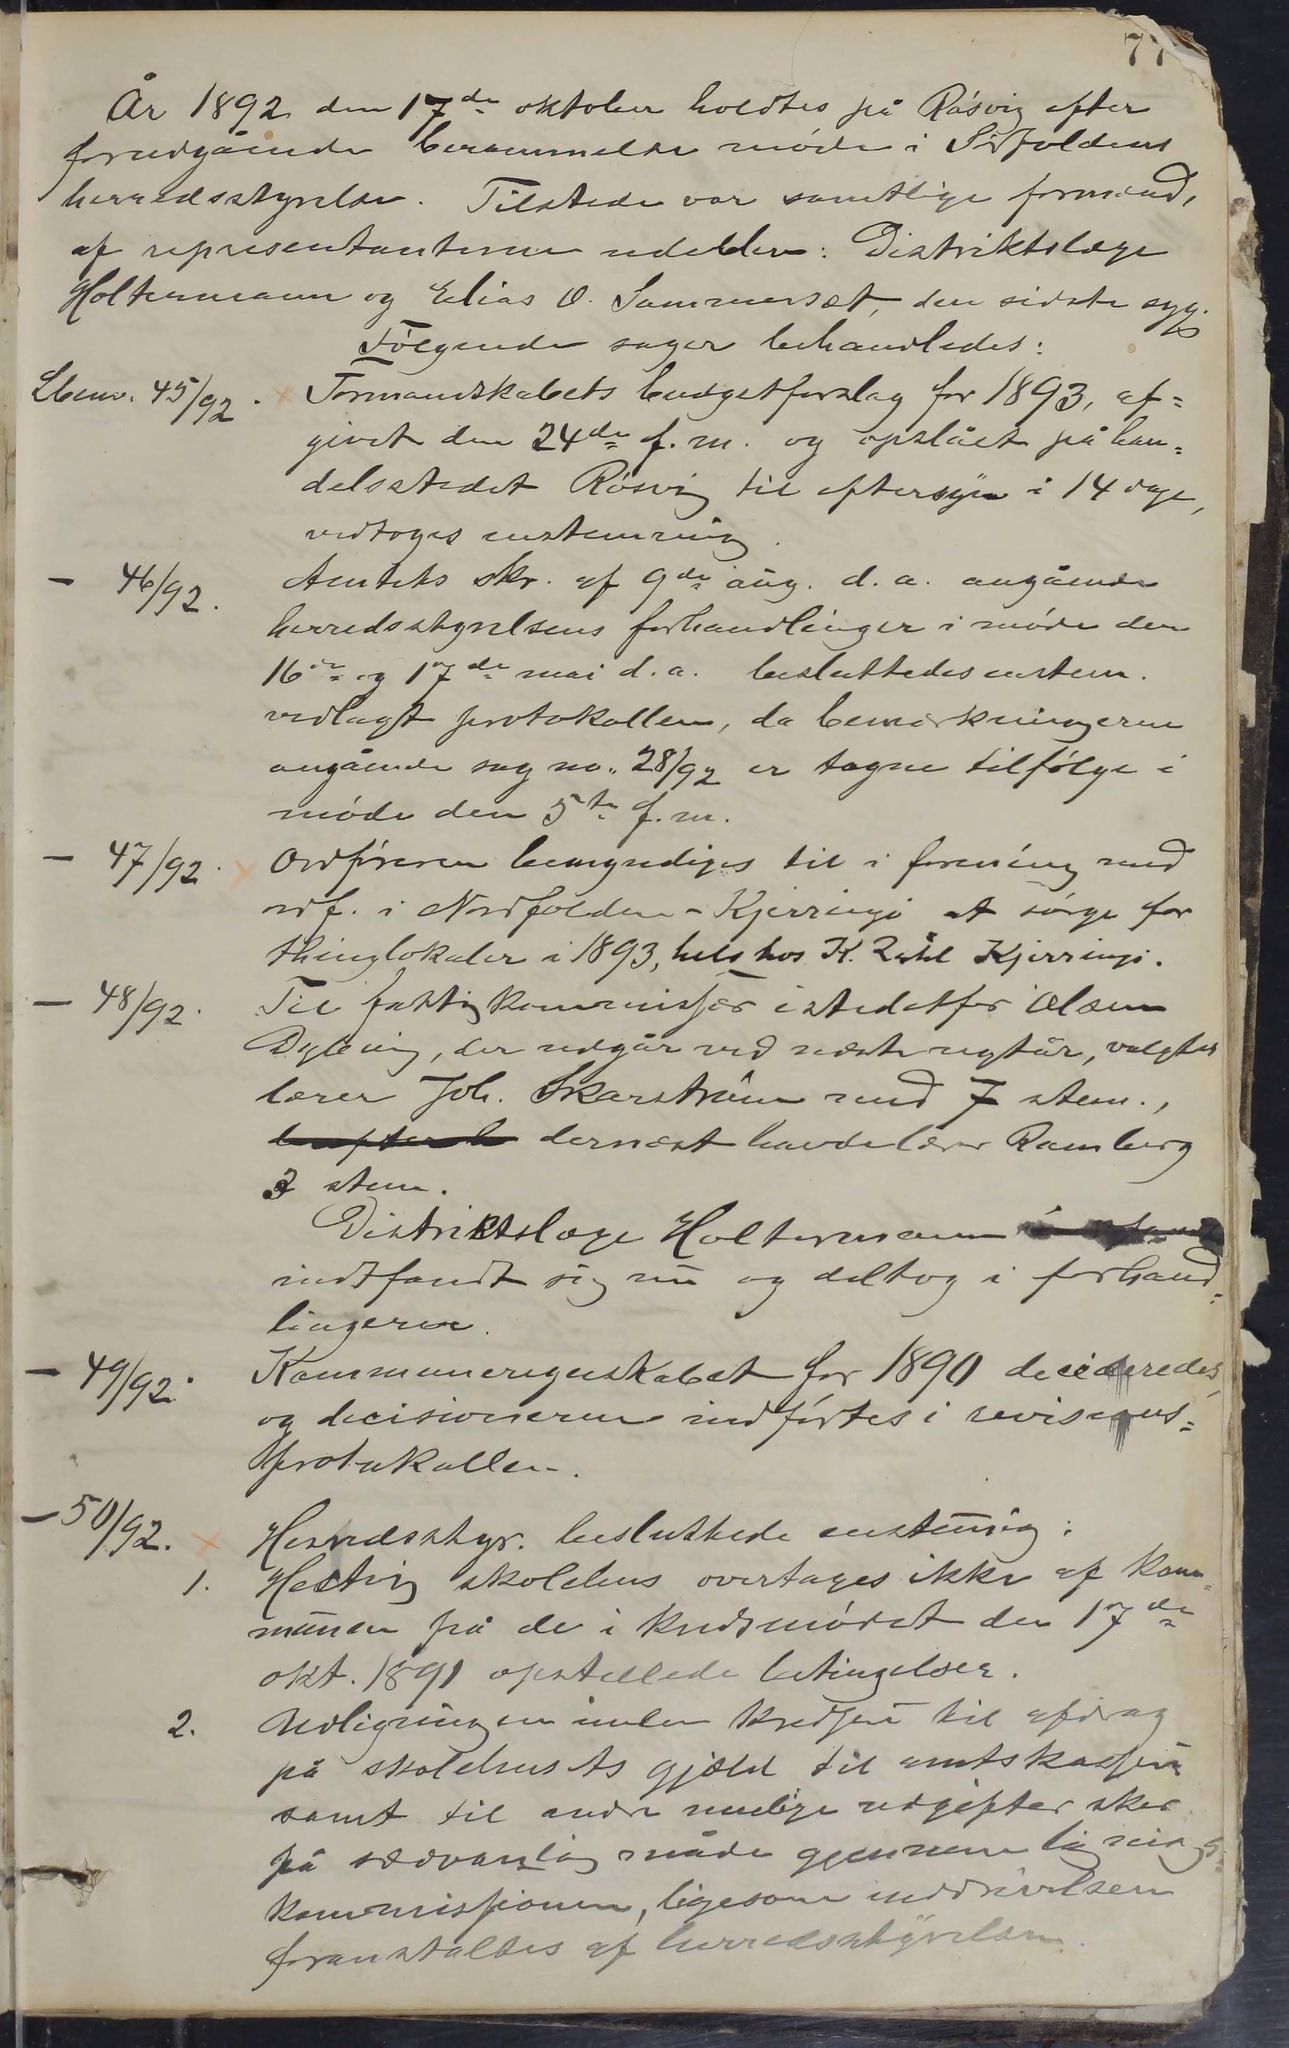 77
År 1892 den 17de oktober holdtes på Røsvig efter
forudgående berammelse møde i Sørfoldens
herredsstyrelse. Tilstede var samtlige formænd,
af repræsentanterne udeblev: Distriktslæge
Holtermann og Elias O. Sommerset, den sidste syg.
Følgende sager behandledes:
45/92. Formandskabets budgetforslag for 1893, af=
givet den 24de f.m. og opslået på han=
delsstedet Røsvig til eftersyn i 14 dage,
vedtoges enstemmig.
- 46/92. Amtets skr. af 9de aug. d.a. angående
herredsstyrelsens forhandlinger i møde den
16de og 17de mai d.a. besluttedes enstem.
vedlagt protokollen, da bemærkningerne
angående sag no. 28/92 er tagne tilfølge i
møde den 5te f.m.
- 47/92. Ordføreren bemyndiges til i forening med
ordf. i Nordfolden-Kjerringø at sørge for
thinglokaler i 1893, hels hos K. Zahl Kjerringø.
- 48/92. Til fattigkommissær istedetfor Olsen
Dybvig, der udgår ved næste nytår, valgtes
lærer Joh. Skarstrøm med 7 stem.,
dernæst havde lærer Ramberg
3 stem.
Distriktslæge Holtermann
indfandt sig nu og deltog i forhand=
lingerne.
- 49/92. Kommuneregnskabet for 1890 decideredes,
og decisionerne indførtes i revisions=
protokollen.
- 50/92. Herredsstyr. besluttede enstemmig:
1. skolehus overtages ikke af kom=
munen på de i kredsmødet den 17de
okt. 1891 opstillede betingelser.
2. Udligningen inden kredsen til afdrag
på skolehusets gjæld til amtskassen
samt til andre mulige udgifter sker
på sædvanlig måde gjennem lignings=
kommissionen, ligesom inddrivelsen
foranstaltes af herredsstyrelsen.